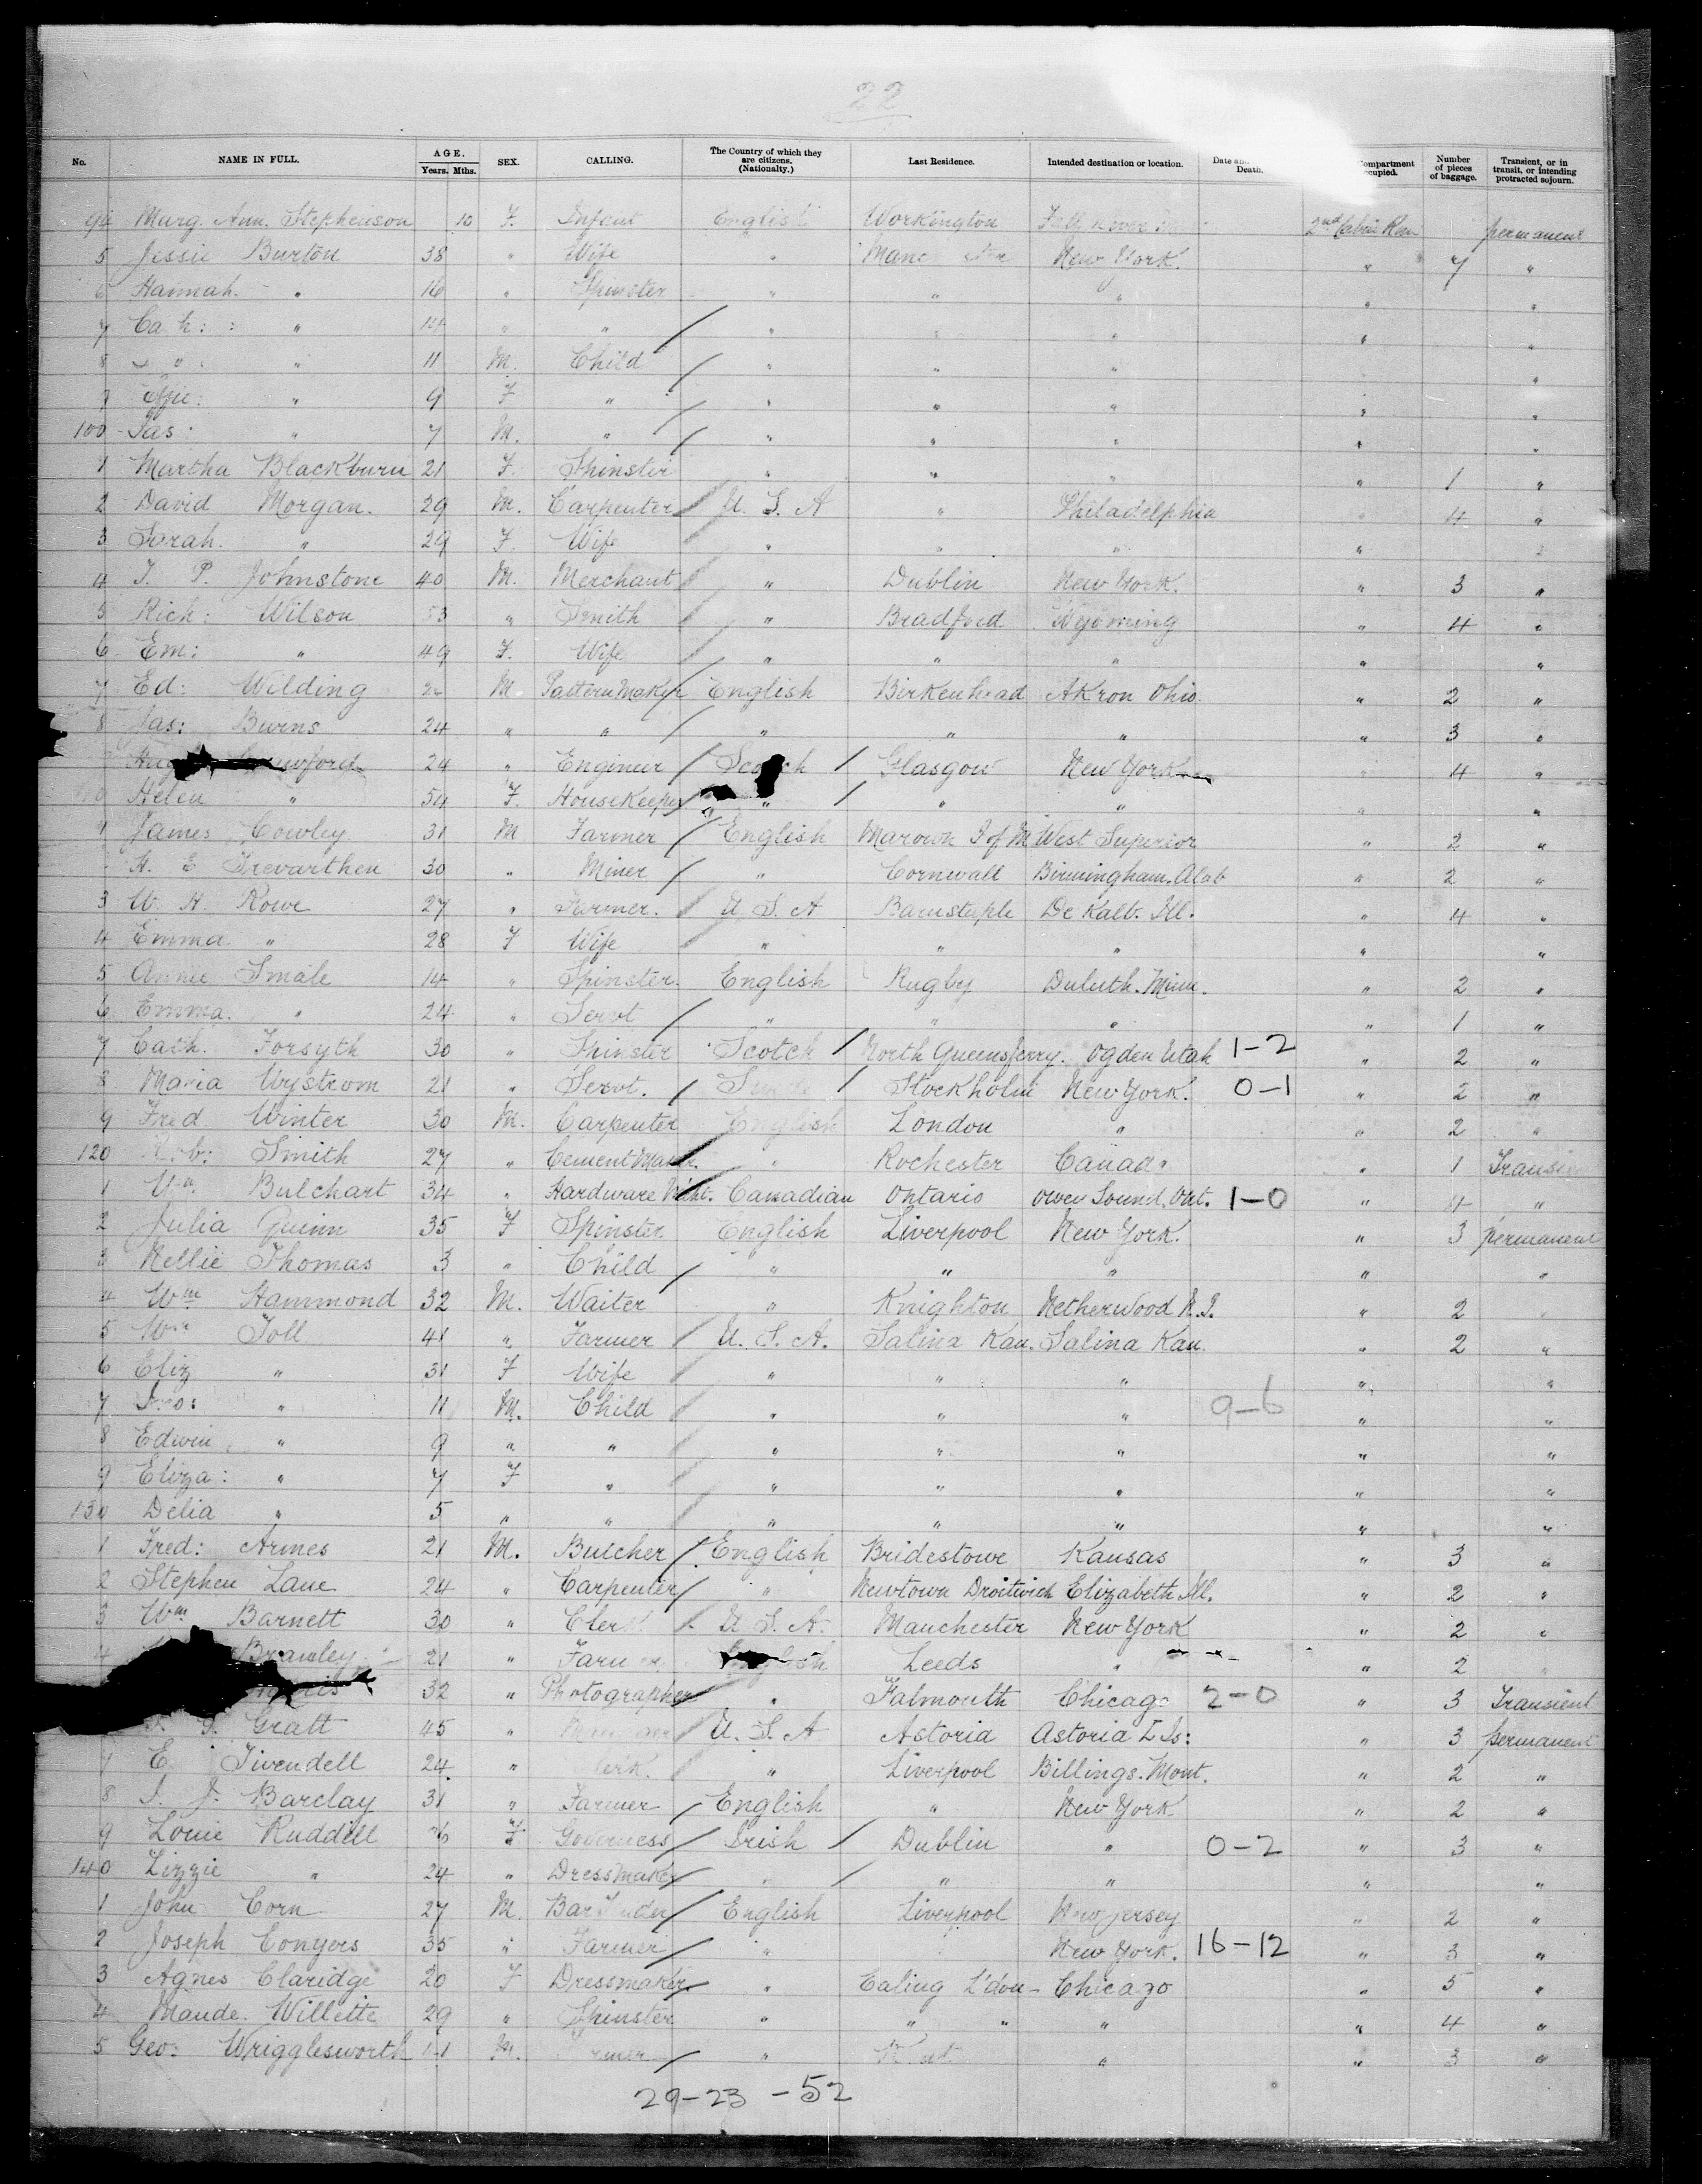 22
No. NAME IN FULL. AGE. Years. Mths. SEX. CALLING. The Country of which they are citizens. (Nationalty.) Last Residence. Intended destination or location. Date and Death. ompartment cupied. Number of pieces of baggage. Transient, or in transit, or intending protracted sojourn.
94 Marg. Ann. Stephenson 10 F. Infant English Workington 2nd Cabin permanent
5 Jessie Burton 38 " Wife " Manc New York. " 7 "
6 Hannah. " 16 " Spinster " " " " "
7 Cath: " 14 " " " " " " "
8 " 11 M. Child " " " " "
9 Effie: " 9 F " " " " " "
100 Jas: " 7 M. " " " " " "
1 Martha Blackburn 21 F. Spinster " " " " 1 "
2 David Morgan. 29 M. Carpenter U. S. A " Philadelphia " 4 "
3 Sarah. " 29 F. Wife " " " " "
4 J. P. Johnstone 40 M. Merchant " Dublin New York. " 3 "
5 Rich: Wilson 53 " Smith " Bradford Wyoming " 4 "
6 Em: " 49 F. Wife " " " " "
7 Ed: Wilding 26 M. Pattern Maker English Birkenhead Akron Ohio. " 2 "
8 Jas: Burns 24 " " " " " " 3 "
Hugh Crawford 24 " Engineer Scotch Glasgow New York " 4 "
Helen " 54 F. Housekeeper " " " " "
1 James Cowley 31 M Farmer English Marown I of M West Superior " 2 "
H. E Trevarthen 30 " Miner " Cornwall Birmingham. Alab " 2 "
3 W. H. Rowe 27 " Farmer. U. S. A Barnstaple De Kalb. Ill. " 4 "
4 Emma. " 28 F Wife " " " " "
5 Annie Smale 14 " Spinster. English Rugby Duluth. Minn. " 2 "
6 Emma. " 24 " Servt " " " " 1 "
7 Cath. Forsyth 30 " Spinster Scotch North Queensferry. Ogden Utah 1-2 " 2 "
8 Maria Wystrom 21 " Servt. Stockholm New York. 0-1 " 2 "
9 Fred Winter 30 M. Carpenter English London " " 2 "
120 Rob: Smith 27 " Cement Maker. " Rochester Canada " 1 Transient
1 Wm. Bulchart 34 " Hardware Mcht. Canadian Ontario Owen Sound. Ont. 1-0 " 4 "
2 Julia Quinn 35 F Spinster English Liverpool New York. " 3 permanent
3 Nellie Thomas 3 " Child " " " " "
4 Wm Hammond 32 M. Waiter " Knighton Netherwood N.J. " 2 "
5 Wm Toll 41 " Farmer U. S. A. Salina Kan. Salina Kan. " 2 "
6 Eliz " 31 F Wife " " " " "
7 Jno: " 11 M. Child " " " 9-6 " "
8 Edwin " 9 " " " " " " "
9 Eliza: " 7 F " " " " " "
130 Delia " 5 " " " " " " "
1 Fred: Armes 21 M. Butcher English Bridestowe Kansas " 3 "
2 Stephen Lane 24 " Carpenter " Newtown Droitwich Elizabeth Ill. " 2 "
3 Wm Barnett 30 " Clerk U. S. A. Manchester New York " 2 "
4 Brawley 21 " Farmer English Leeds " " 2 "
32 " Photographer " Falmouth Chicago 2-0 " 3 Transient
Gratt 45 " U. S. A Astoria Astoria L Is: " 3 permanent
7 E. Tivendell 24 " Clerk. " Liverpool Billings. Mont. " 2 "
8 J. J. Barclay 31 " Farmer English " New York " 2 "
9 Louie Ruddell 26 F Governess Irish Dublin " 0-2 " 3 "
140 Lizzie " 24 " Dressmaker " " " " "
1 John Corn 27 M. Bar Tender English Liverpool New Jersey " 2 "
2 Joseph Conyers 35 " Farmer " New York. 16-12 " 3 "
3 Agnes Claridge 20 F Dressmaker " Ealing L'don- Chicago " 5 "
4 Maude. Willette 29 " Spinster " " " " " 4 "
5 Geo: Wrigglesworth M. " Kent " " 3 "
29-23 -52